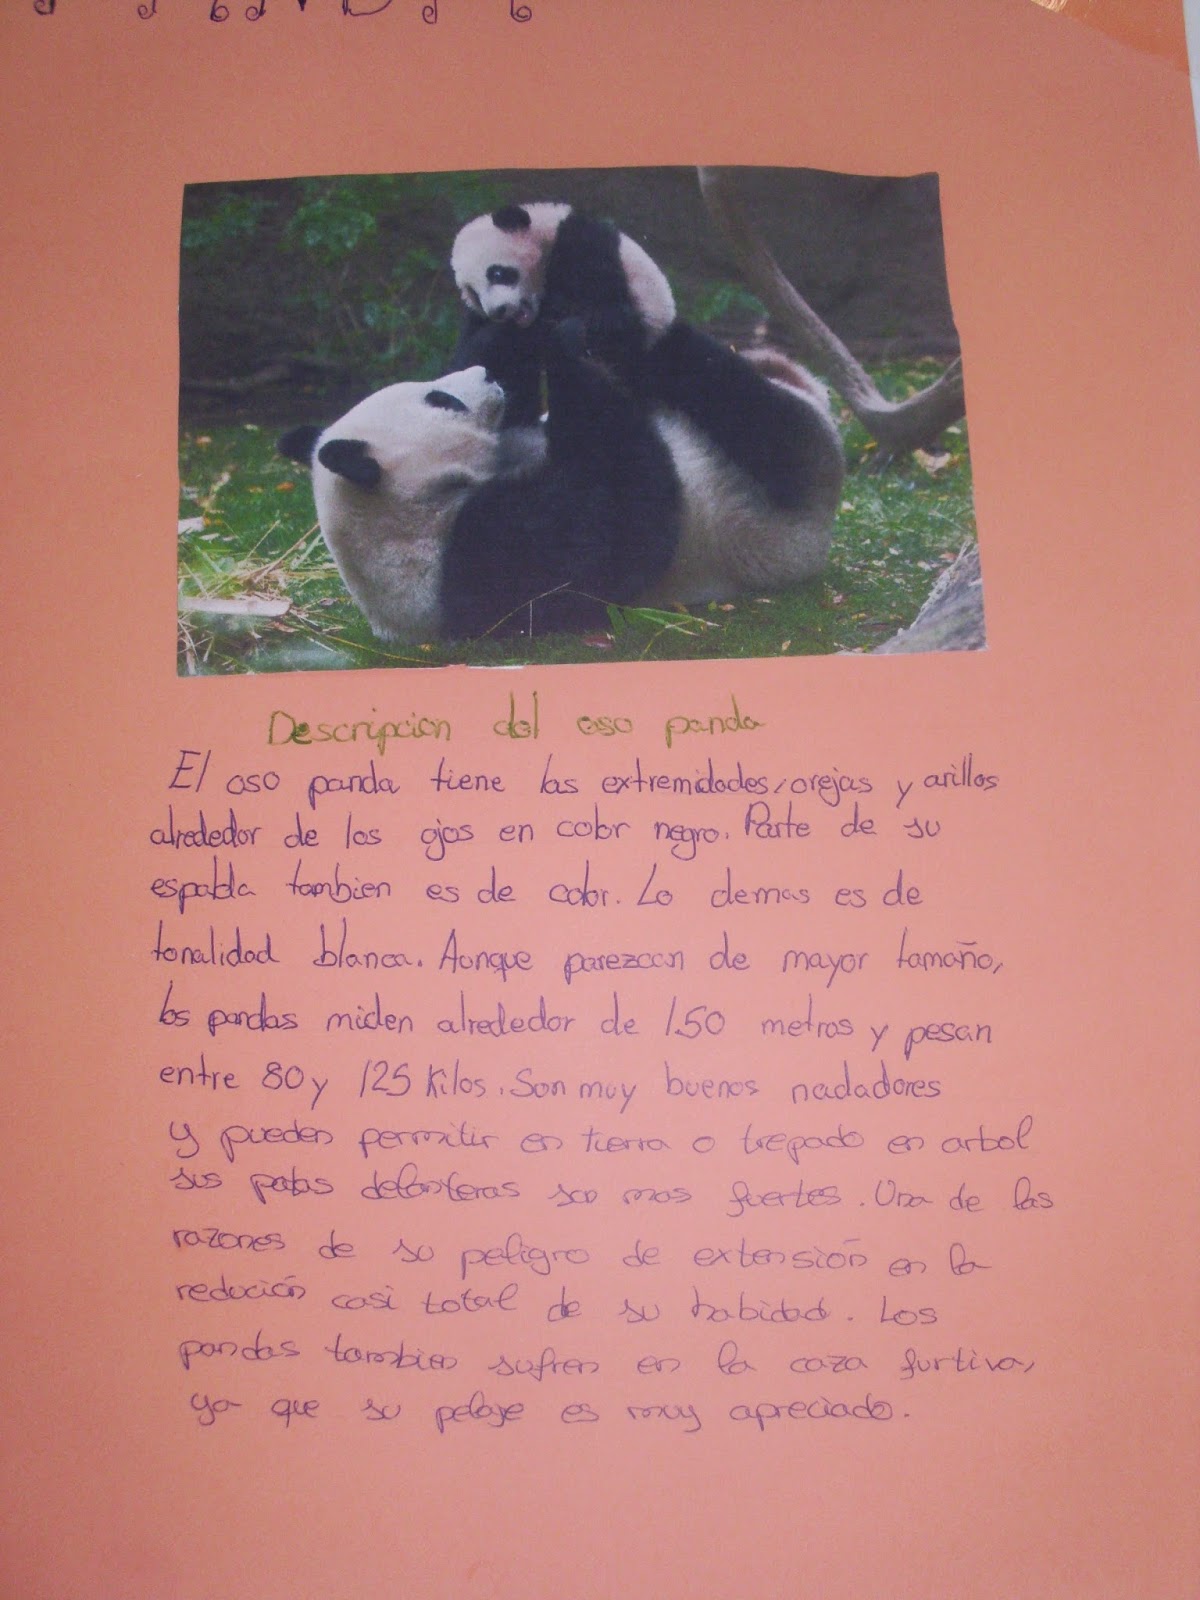 Descripcion del oso panda
El oso panda tiene las extremidades, orejas y anillos
alrededor de los ojos en color negro. Parte de su
espalda tambien es de color. Lo demas es de
tonalidad blanca. Aunque parezcan de mayor tamaño,
los pandas miden alrededor de 1.50 metros y pesan
entre 80 y 125 kilos. Son muy buenos nadadores
y pueden permitir en tierra o trepado en arbol
sus patas delanteras son mas fuertes. Una de las
razones de su peligro de extensión en la
redución casi total de su habidad. Los
pandas tambien sufren en la caza furtiva,
ya que su pelaje es muy apreciado.